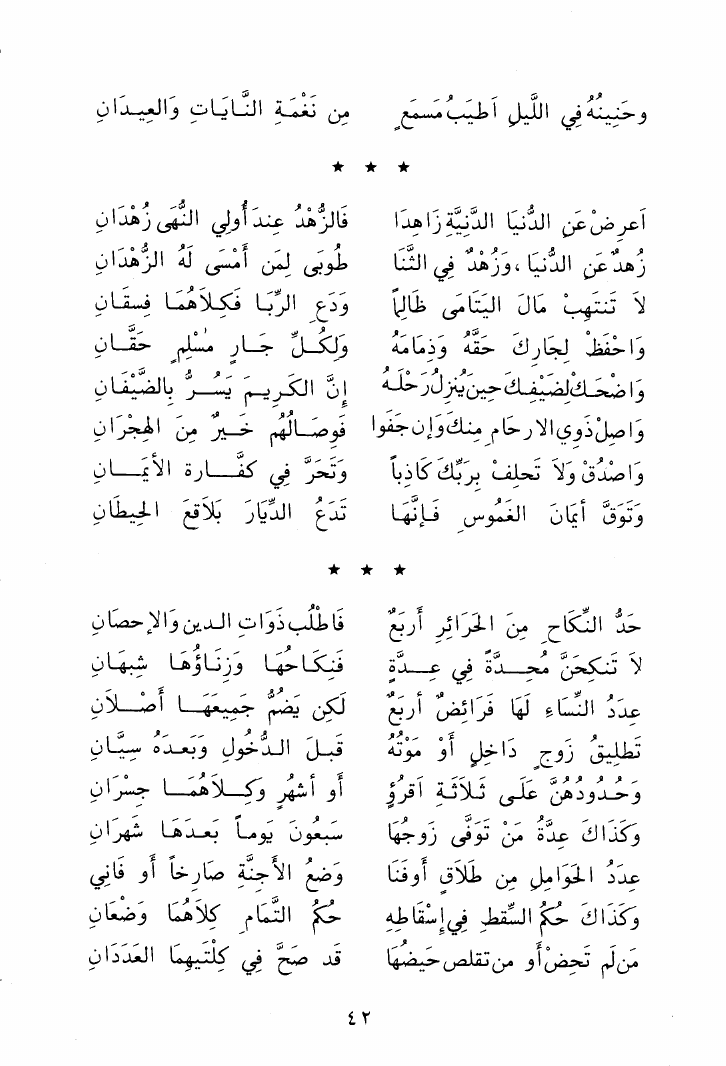 وحَنِينُهُ في اللَّيلِ أطيَبُ مَسمَعٍ مِن نَغْمَةِ النَّايَاتِ وَالعِيدَانِ
★ ★ ★
أَعرِضْ عَنِ الدُّنيَا الدَّنِيَّةِ زَاهِدَا فَالزُّهْدُ عِندَ أُولي النُّهَى زُهْدَانِ
زُهدٌ عَنِ الدُّنيَا، وَزُهْدٌ فِي الثَّنَا طُوبَى لِمَن أَمْسَى لَهُ الزُّهْدَانِ
لاَ تَنتَهِبْ مَالَ اليَتَامَى ظَالِماً وَدَعِ الرِّبَا فَكِلاَهُمَا فِسقَانِ
وَاحْفَظْ لِجَارِكَ حَقَّهُ وَذِمَامَهُ وَلِكُلِّ جَارٍ مُسْلِمٍ حَقَّانِ
وَاضْحَكْ لِضَيفِكَ حِينَ يُنزِلُ رَحْلَهُ إِنَّ الكَرِيمَ يَسُرُّ بِالضَّيْفَانِ
وَاصِلْ ذَوِي الارحَامِ مِنكَ وَإِن جَفَوا فَوِصَالُهُم خَيرٌ مِنَ الهِجْرَانِ
وَاصْدُقْ وَلاَ تَحلِفْ بِرَبِّكَ كَاذِباً وَتَحَرَّ فِي كَفَّارَةِ الأَيمَانِ
وَتَوَقَّ أَيمَانَ الغَمُوسِ فَإِنَّهَا تَدَعُ الدِّيَارَ بَلاَقِعَ الحِيطَانِ
★ ★ ★
حَدُّ النِّكَاحِ مِنَ الحَرَائِرِ أَربَعٌ فَاطْلُب ذَوَاتِ الدِينِ وَالإِحصَانِ
لاَ تَنكِحَنَّ مُحِدَّةً فِي عِدَّةٍ فَنِكَاحُهَا وَزِنَاؤُهَا شِبهَانِ
عِدَدُ النِّسَاءِ لَهَا فَرَائِضُ أربَعٌ لَكِن يَضُمُّ جَمِيعَهَا أَصْلاَنِ
تَطلِيقُ زَوجٍ دَاخِلٍ أَوْ مَوْتُهُ قَبلَ الدُّخُولِ وَبَعدَهُ سِيَّانِ
وَحُدُودُهُنَّ عَلَى ثَلاَثَةِ أَقرُؤٍ أو أشهُرٍ وَكِلاَهُمَا جِسْرَانِ
وَكَذَاكَ عِدَّةُ مَنْ تَوَفَّى زَوجُهَا سَبعُونَ يَوماً بَعدَهَا شَهرَانِ
عِدَدُ الحَوَامِلِ مِن طَلاَقٍ أَو فَنَا وَضعُ الأَجنَّةِ صَارِخاً أو فَانِي
وَكَذَاكَ حُكمُ السِّقطِ فِي إِسْقَاطِهِ حُكمُ التَّمَامِ كِلاَهُمَا وَضْعَانِ
مَن لَم تَحِضْ أَو مَن تَقلص حَيضُهَا قَد صَحَّ فِي كِلْتَيهِمَا العَدَدَانِ
٤٢